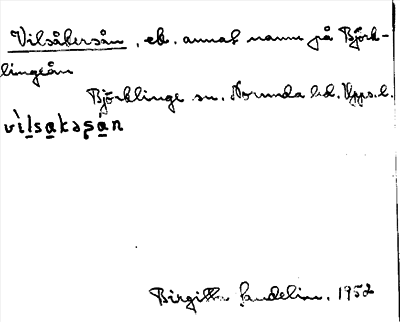 Vilsåkersån, ek. annat namn på Björk-
lingeån
Björklinge sn. Norunda hd. Upps. l.
vìlsakəʂån
Birgitta Sandelin. 1952